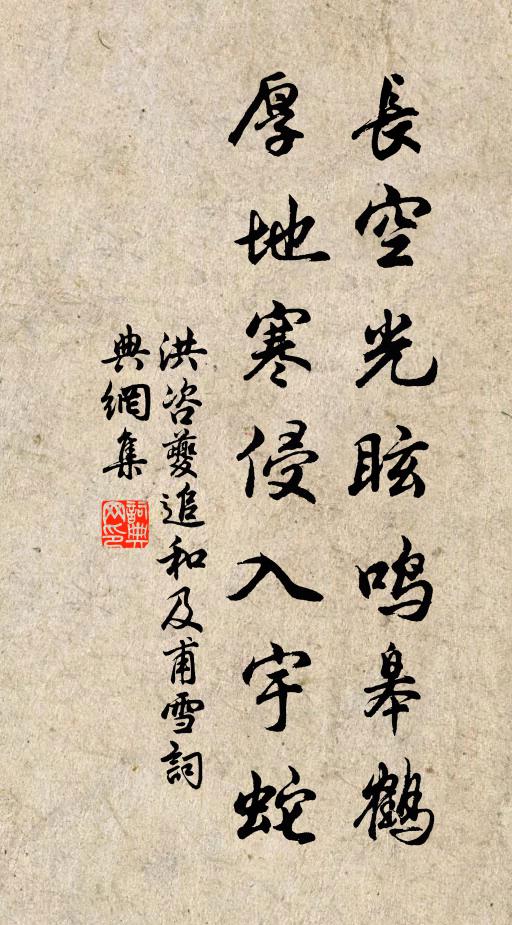 長空光眩鳴皋鶴
厚地寒侵入宇蛇
洪咨夔追和及甫雪詞
典網集
詞典
网印